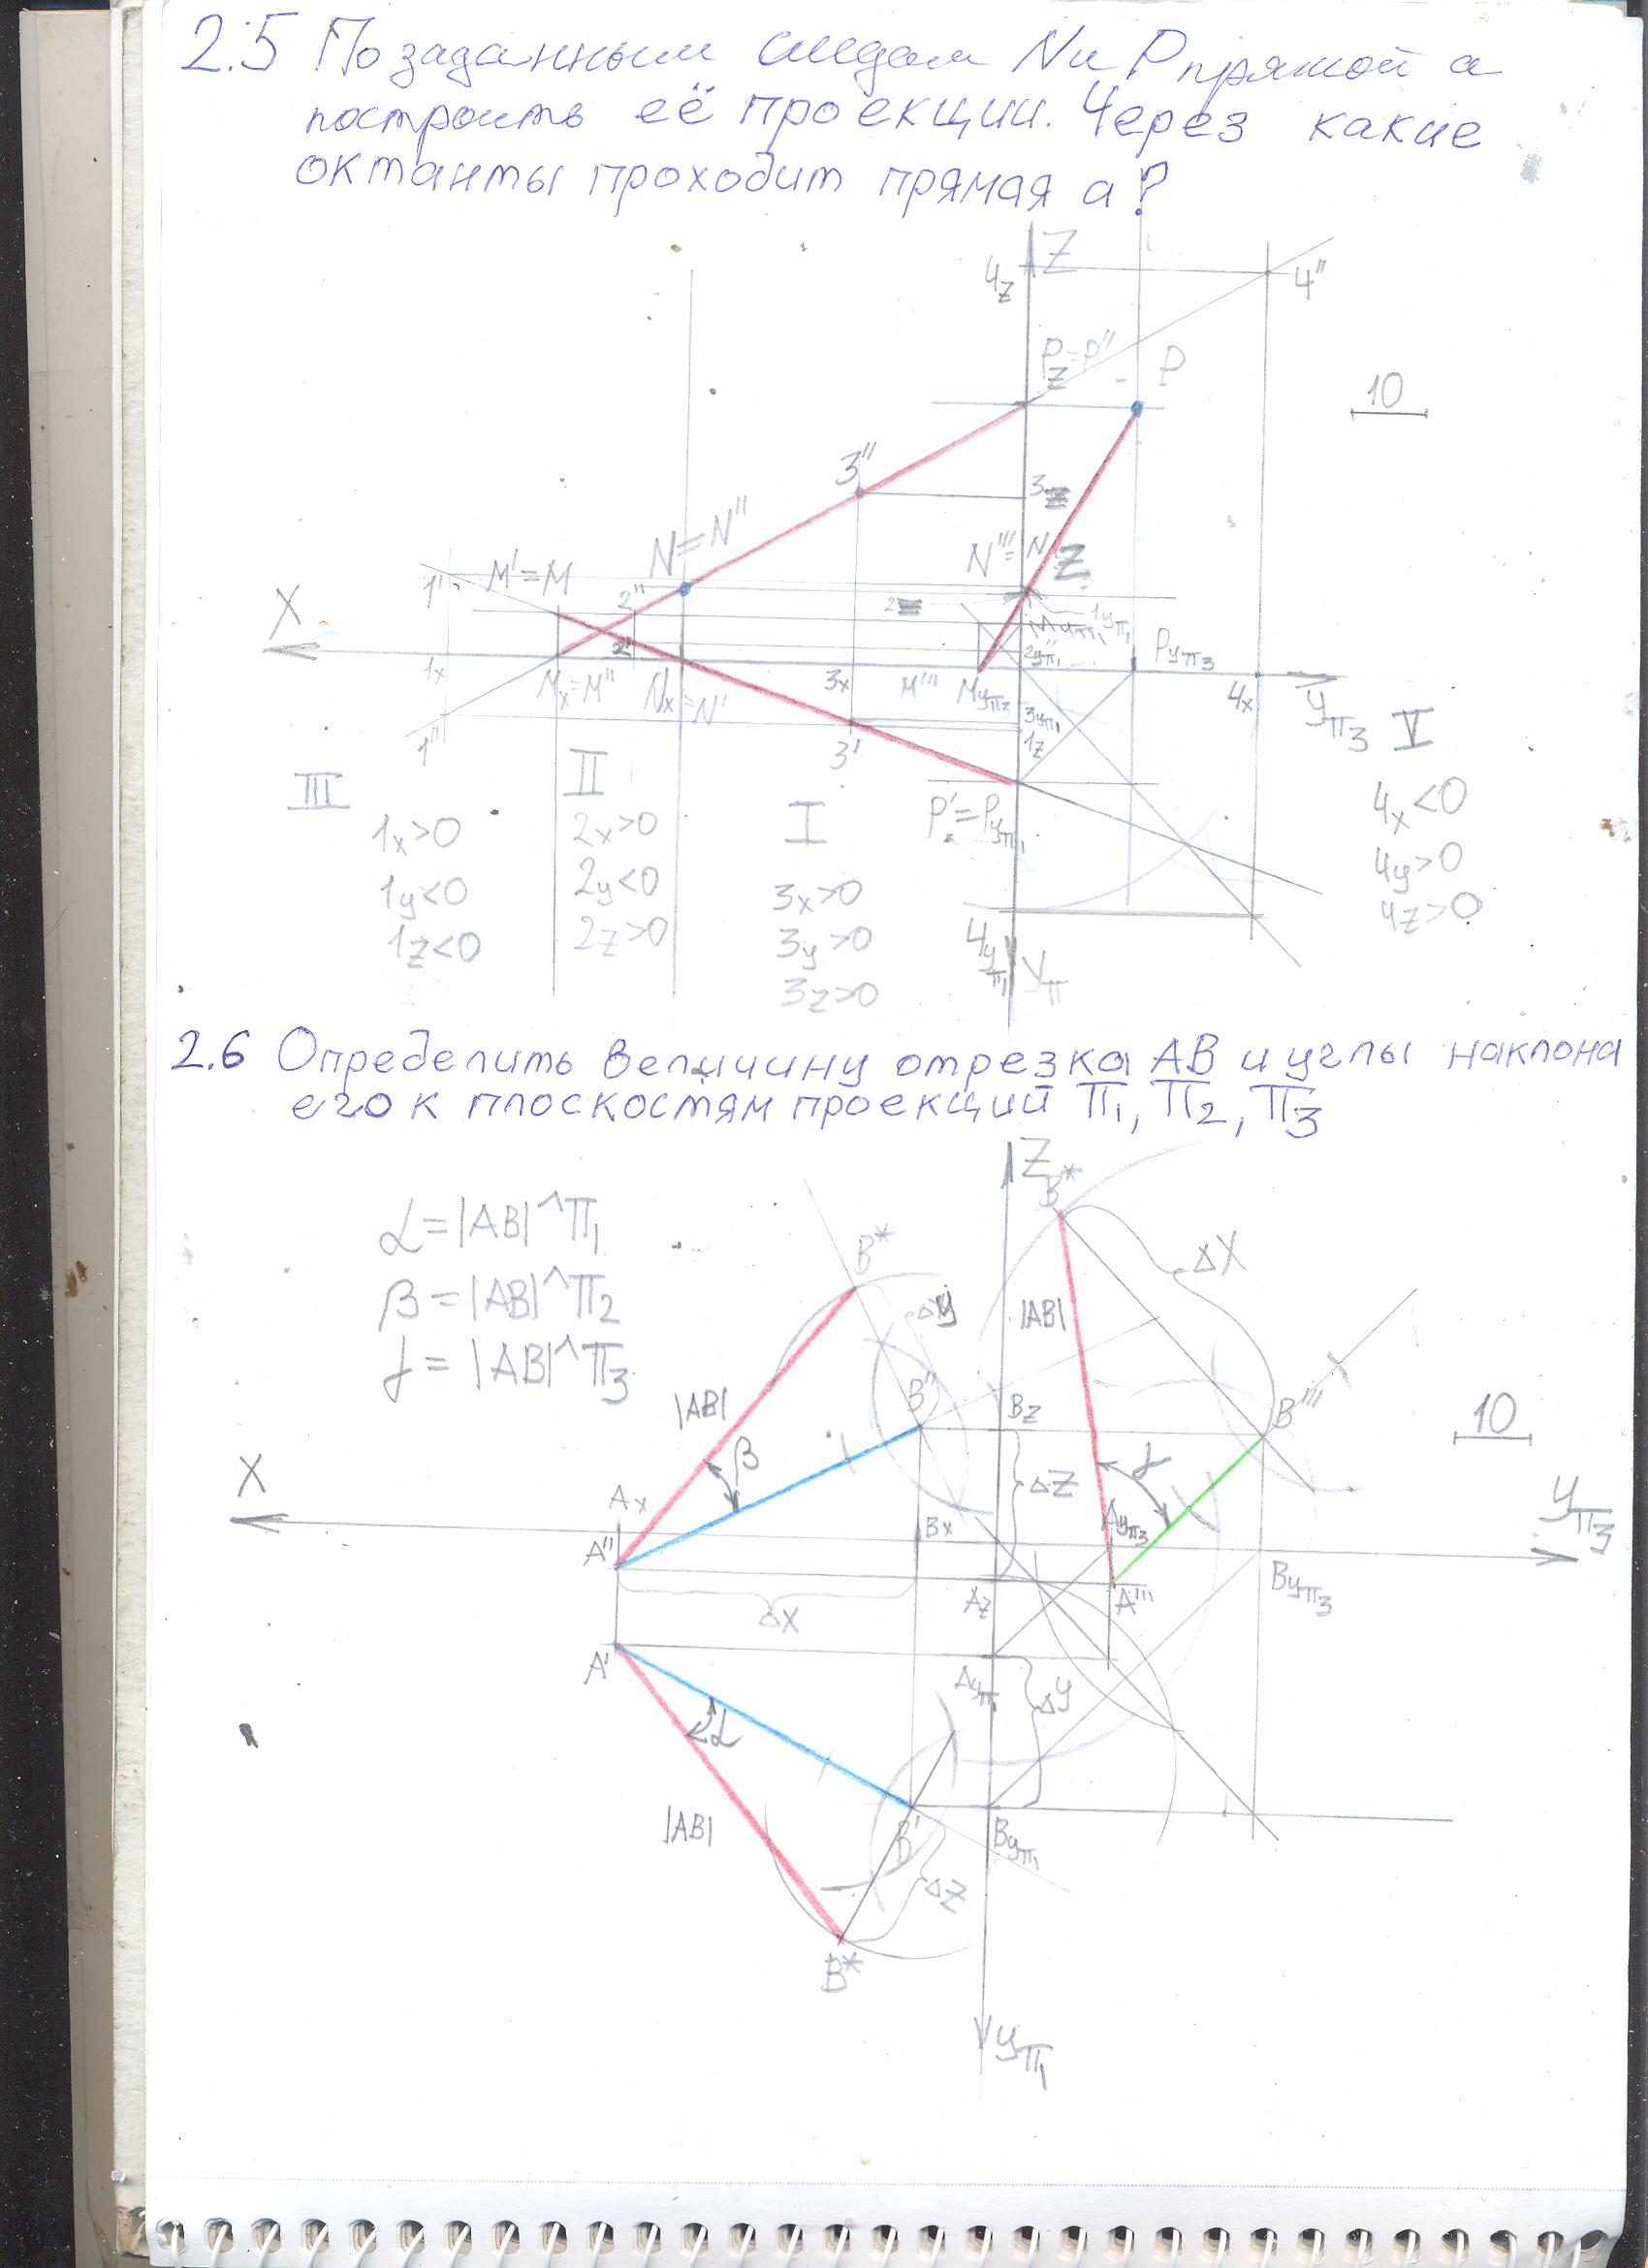 2.5 По заданным следам N и P прямой а
построить её проекции. Через какие
октанты проходит прямая а?
Z
4z
4"
Pz=P"
P
10
3"
3z
N=N"
N'''=N
Z
M'=M
1'
2"
1yп₁
X
Myп₁
2yп₁
Pyп3
2'
1x
Mx=M"
Nx=N'
3x
M'''
Myп3
4x
yп3
3yп₁
1z
1"
3'
P'=Pyп₁
III
II
I
V
1x>0
1y<0
1z<0
2x>0
2y<0
2z>0
3x>0
3y>0
3z>0
4x<0
4y>0
4z>0
4yп₁
yп
2.6 Определить величину отрезка АВ и углы наклона
его к плоскостям проекций П₁, П₂, П3
Z
B*
α=|AB|^П₁
β=|AB|^П₂
γ=|AB|^П3
B*
Δy
ΔX
|AB|
|AB|
B"
Bz
B'''
10
β
ΔZ
γ
X
Ax
Bx
Ayп3
yп3
A"
Az
A'''
Byп3
ΔX
A'
Ayп₁
Δy
α
|AB|
B'
Byп₁
ΔZ
B*
yп₁